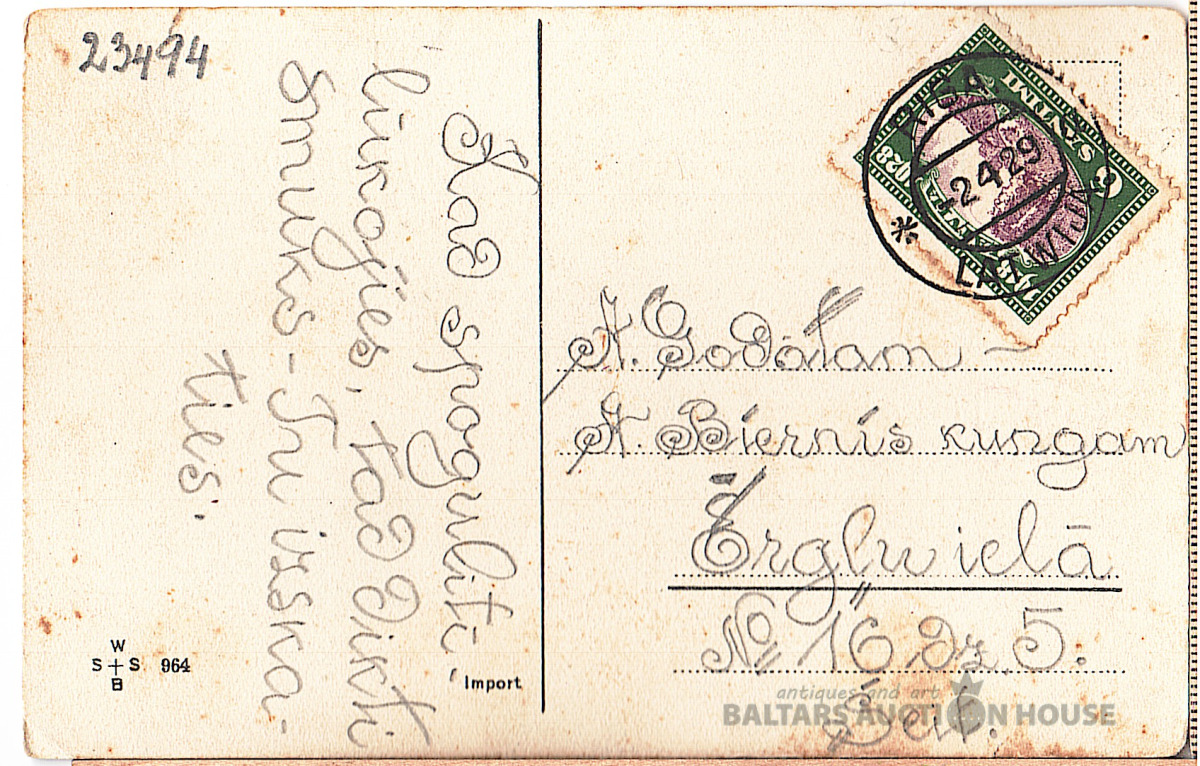 23494
Kad spogulītī,
lūkojies, tad dikti
smuks - Tu izska-
ties.
W
S + S 964
B
Import
RIGA
-2.4.29
* LATWIJA
6 SANTIMI
A. Godātam -
A. Biernis kungam
Ērgļu ielā
№ 16 dz. 5.
antiques and art
BALTARS AUCTION HOUSE